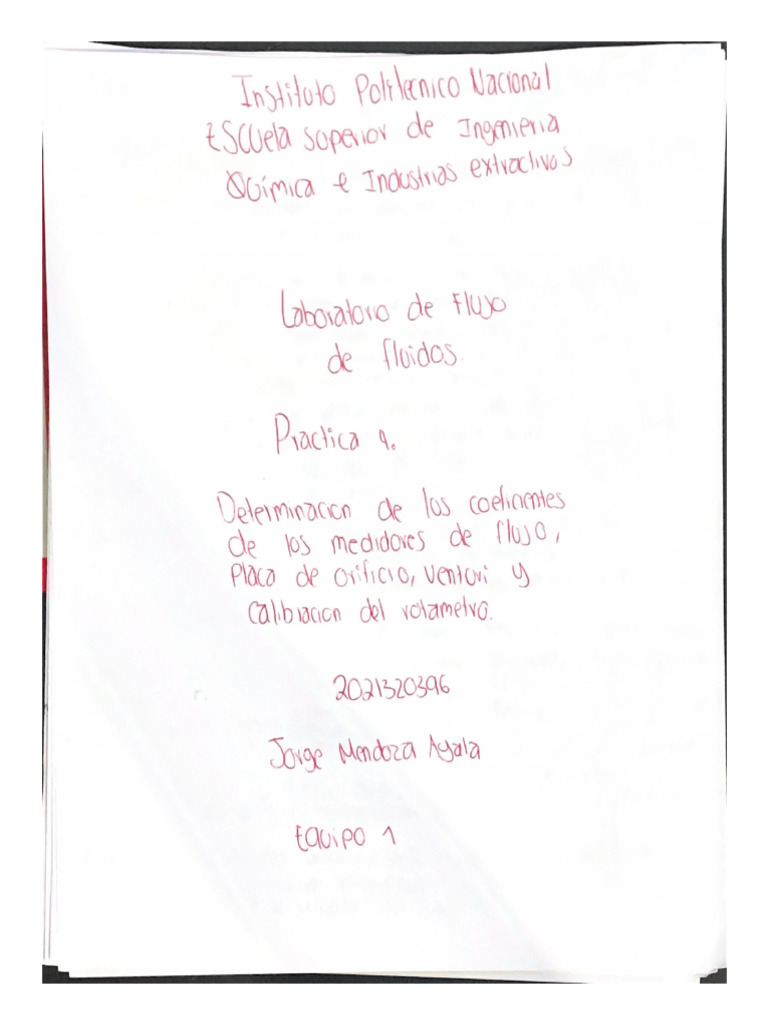 Instituto Politecnico Nacional
Escuela Superior de Ingenieria
Química e Industrias extractivas
Laboratorio de Flujo
de fluidos.
Practica 9.
Determinacion de los coeficientes
de los medidores de flujo,
Placa de orificio, venturi y
Calibracion del rotametro.
2021320396
Jorge Mendoza Ayala
Equipo 1